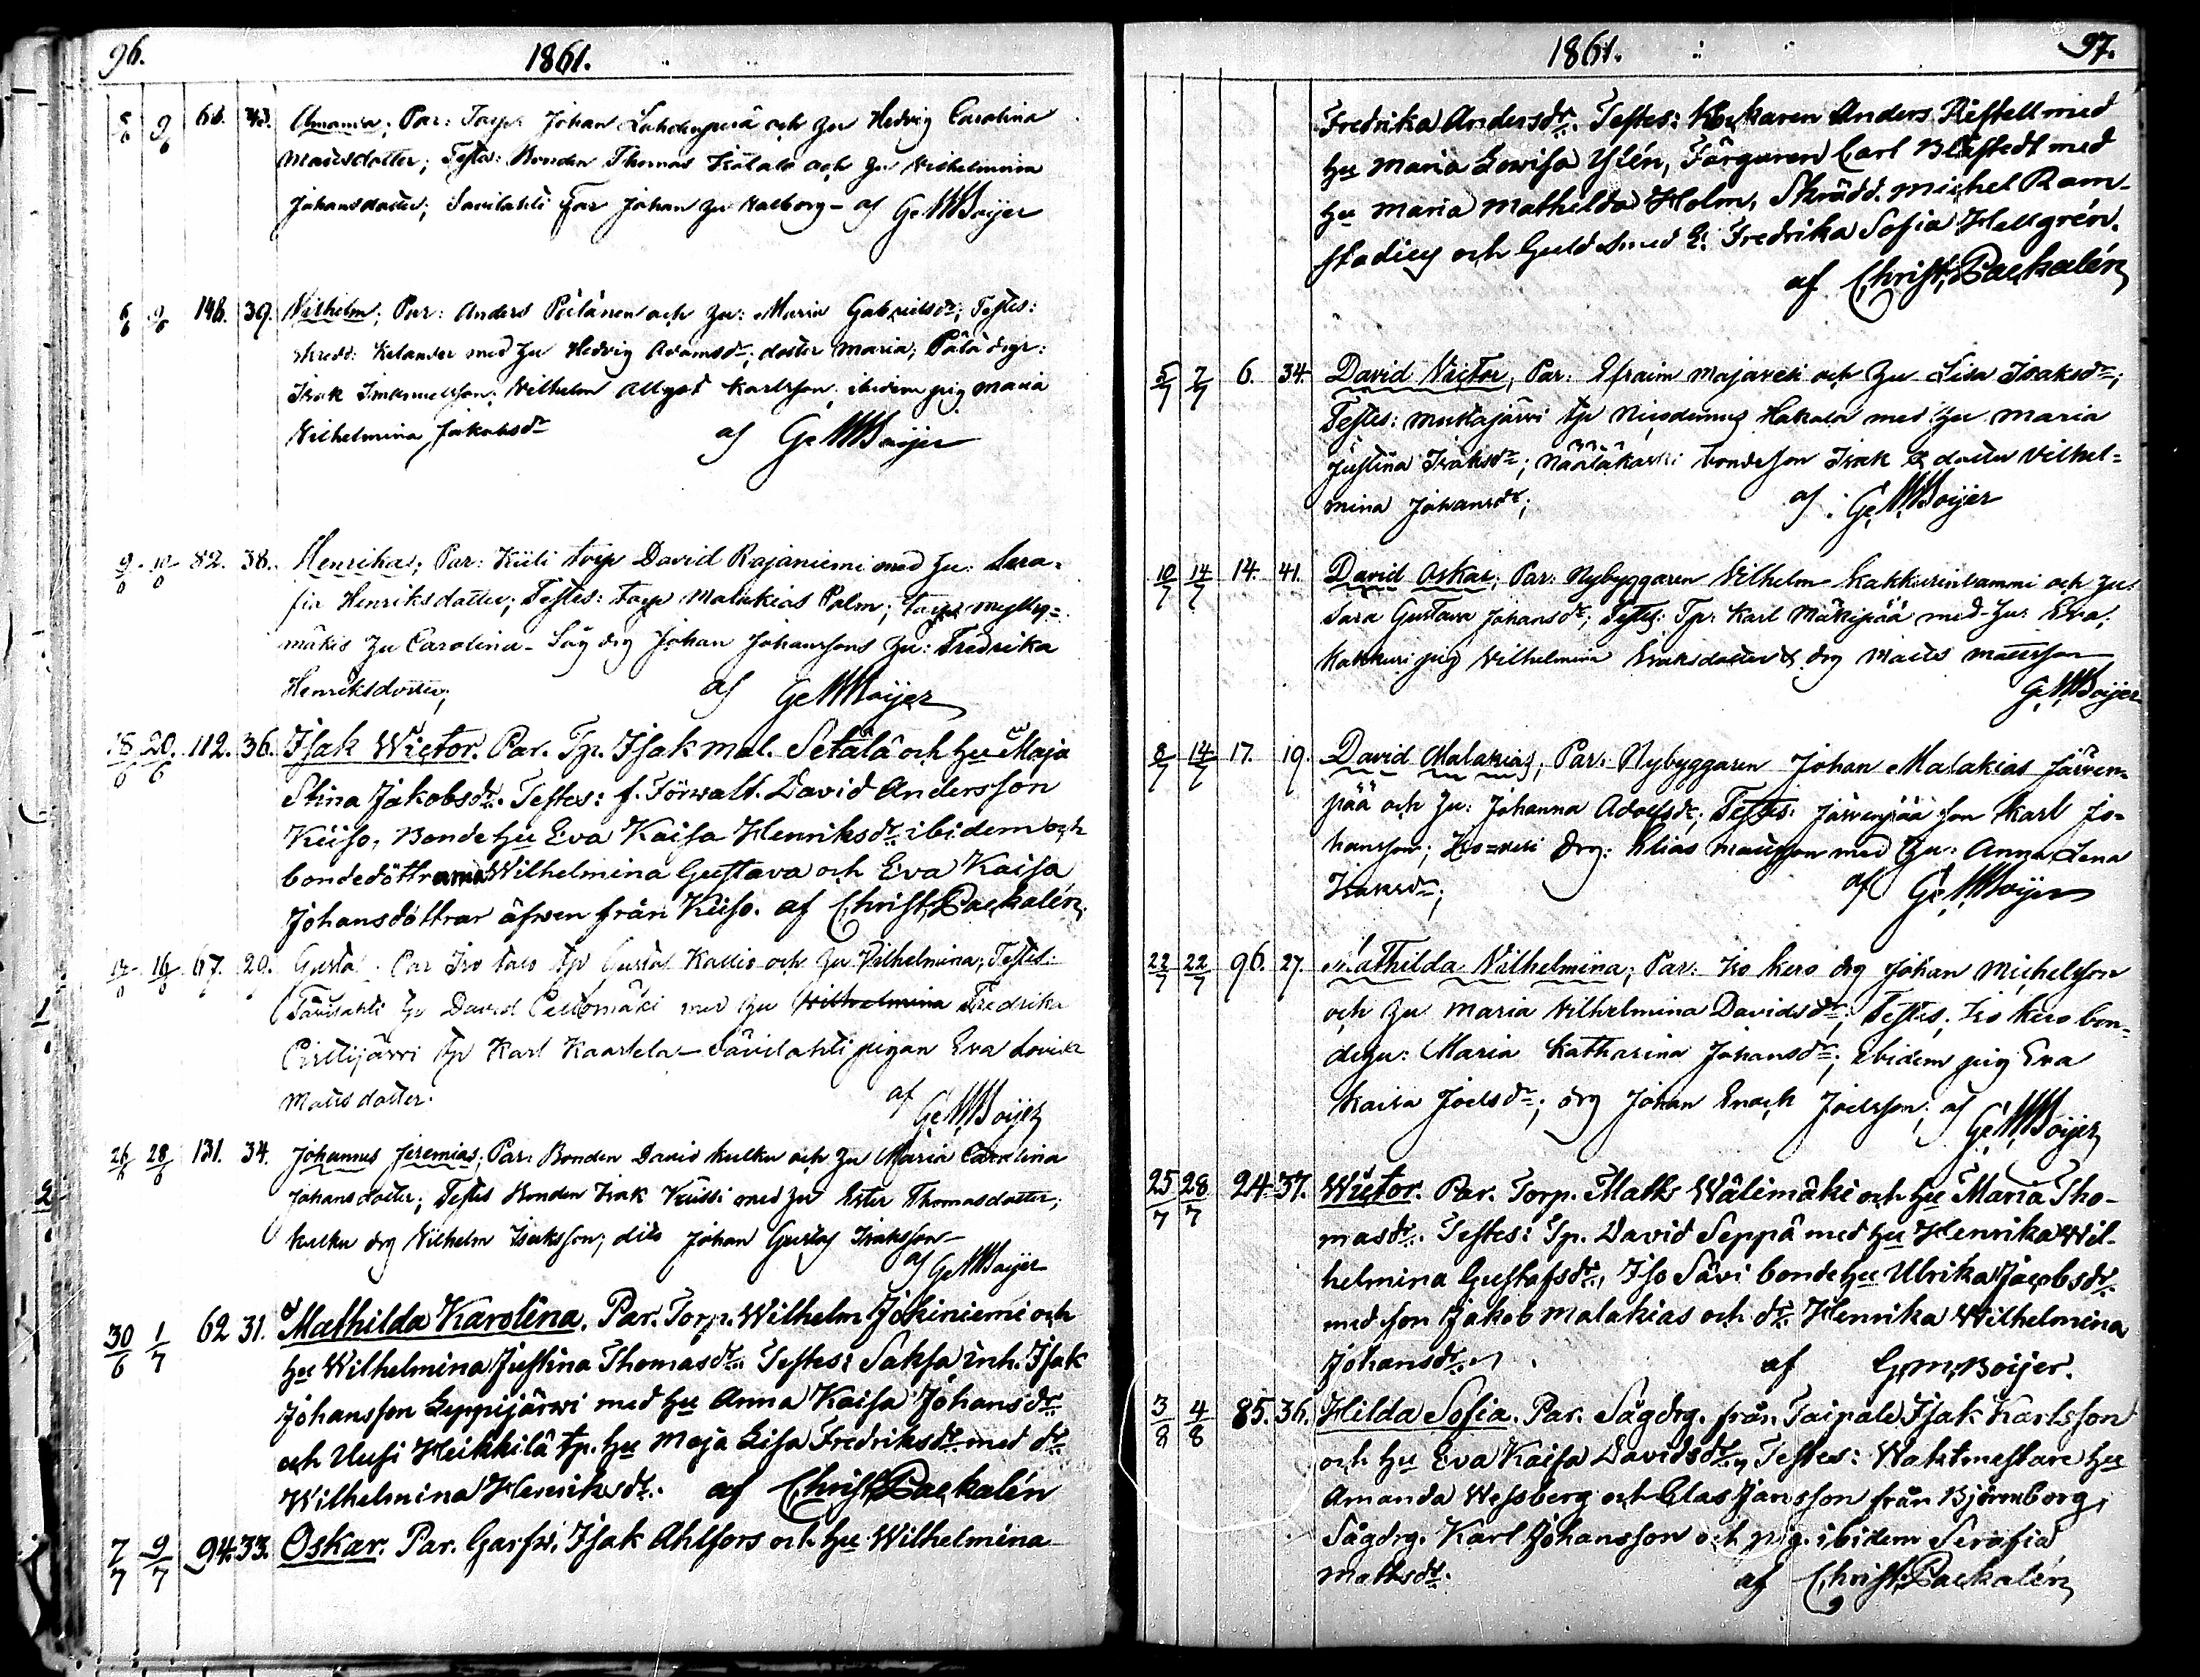 96.
1861.
5/6 9/6 66. 43. Amanda; Par: Torp. Johan Lahdenperä och Hu Hedvig Carolina
Mattsdotter; Testes: Bonden Thomas Kätälä och Hu Vilhelmina
Johansdotter; Savilahti Johan Hu Valborg – af G. M. Boijer
6/6 9/6 148. 39. Vilhelm; Par: Anders Pöilänen och Hu: Maria Gabrielsdr; Testes:
skredd: Kelander med Hu Hedvig Adamsdr; dotter Maria; drgr:
Isak; Vilhelm Karlsson, ibidem pig Maria
Vilhelmina Jakobsdr af G. M. Boijer
9/6 10/6 82. 38. Henrika; Par: Kiili torp David Rajaniemi med Hu: Sera-
fia Henriksdotter; Testes: torp Malakias Palm; torp Mylly-
mäkis Hu Carolina – Såg drg Johan Johanssons Hu: Fredrika
Henriksdotter; af G. M. Boijer
18/6 20/6 112. 36. Isak Wictor. Par. Tp. Isak Mal. Setälä och Hu Maja
Stina Jakobsdr. Testes: f. Förwalt. David Andersson
Keiso, Bonde Hu Eva Kaisa Henriksdr ibidem och
bondedöttrarna Wilhelmina Gustava och Eva Kaisa
Johansdöttrar äfwen från Keiso. af Christ. Packalén.
16/6 67. 29. Gustaf. Par Iso talo tp Gustaf Kallio och Hu Vilhelmina; Testes:
Savilahti tp David Peltomäki med Hu Vilhelmina Fredrika
Pirttijärvi tp Karl Kaartela – Savilahti pigan Eva Lovisa
Mattsdotter. af
G. M. Boijer
26/6 28/6 131. 34. Johannes Jeremias; Par: Bonden David Kulku och Hu Maria Carolina
Johansdotter; Testes Bonden Isak Knissi med Hu Ester Thomasdotter;
Kulku drg Vilhelm Isaksson; dito Johan Gustaf Isaksson –
af G. M. Boijer
30/6 1/7 62 31. Mathilda Karolina. Par. Torp. Wilhelm Jokiniemi och
Hu Wilhelmina Justina Thomasdr. Testes: Saksa, inh. Isak
Johansson Leppijärwi med Hu Anna Kaisa Johansdr
och Uusi Heikkilä tp. Hu Maja Lisa Fredriksdr. med dr.
Wilhelmina Henriksdr. af Christ. Packalén
7/7 9/7 94. 33. Oskar. Par. Garfw. Isak Ahlfors och Hu Wilhelmina
1861.
97.
Fredrika Andersdr. Testes: Anders Ristell med
Hu Maria Lowisa Ylén, Färgaren Carl Blåfiedt med
Hu Maria Mathilda Holm, Skrädd. Michel Ram-
stadius och Guldsmed E. Fredrika Sofia Hellgrén.
af Christ. Packalén
5/7 7/7 6. 34. David Victor, Par: Efraim Majavesi och Hu Lisa Isaksdr;
Testes: Mustajärvi tp Nicodemus Hakala med Hu Maria
Justina Isaksdr; bondeson Isak & dotter Vilhel-
mina Johansdr; af G. M. Boijer
10/7 14/7 14. 41. David Oskar; Par: Nybyggaren Vilhelm Kakkurinlammi och Hu:
Sara Gustava Johansdr; Testes: Tp: Karl Mäkipää med Hu: Eva;
Kakkuri pig Vilhelmina Eriksdotter & drg Matts Mattsson
G. M. Boijer
8/7 14/7 17. 19. David Malakias; Par: Nybyggaren Johan Malakias Järven-
pää och Hu: Johanna Adolfsdr; Testes: Järvenpää son Karl Jo-
hansson; drg: Elias Mattsson med Hu: Anna Lena
Isaksdr; af G. M. Boijer
22/7 22/7 96. 27. Mathilda Vilhelmina; Par: Iso Kero drg Johan Michelsson
och Hu Maria Vilhelmina Davidsdr; Testes; Iso Kero bon-
dehu: Maria Katharina Johansdr; ibidem pig Eva
Kaisa Joelsdr; drg Johan Enoch Joelsson; af
G. M. Boijer
25/7 28/7 24. 37. Wictor. Par. Torp. Matts Wälimäki och Hu Maria Tho-
masdr. Testes: Tp. David Seppä med Hu Henrika Wil-
helmina Gustafsdr, Iso Säwi bonde Hu Ulrika Jacobsdr
med son Jakob Malakias och dr. Henrika Wilhelmina
Johansdr. af G. M. Boijer.
3/8 4/8 85. 36. Hilda Sofia. Par. Sågdrg. från Taipale Isak Karlsson
och Hu Eva Kaisa Davidsdr, Testes: Waktmestare Hu
Amanda Wessberg och Clas Jansson från Björneborg,
Sågdrg. Karl Johansson och pig. ibidem Serafia
Mattsdr. af Christ. Packalén